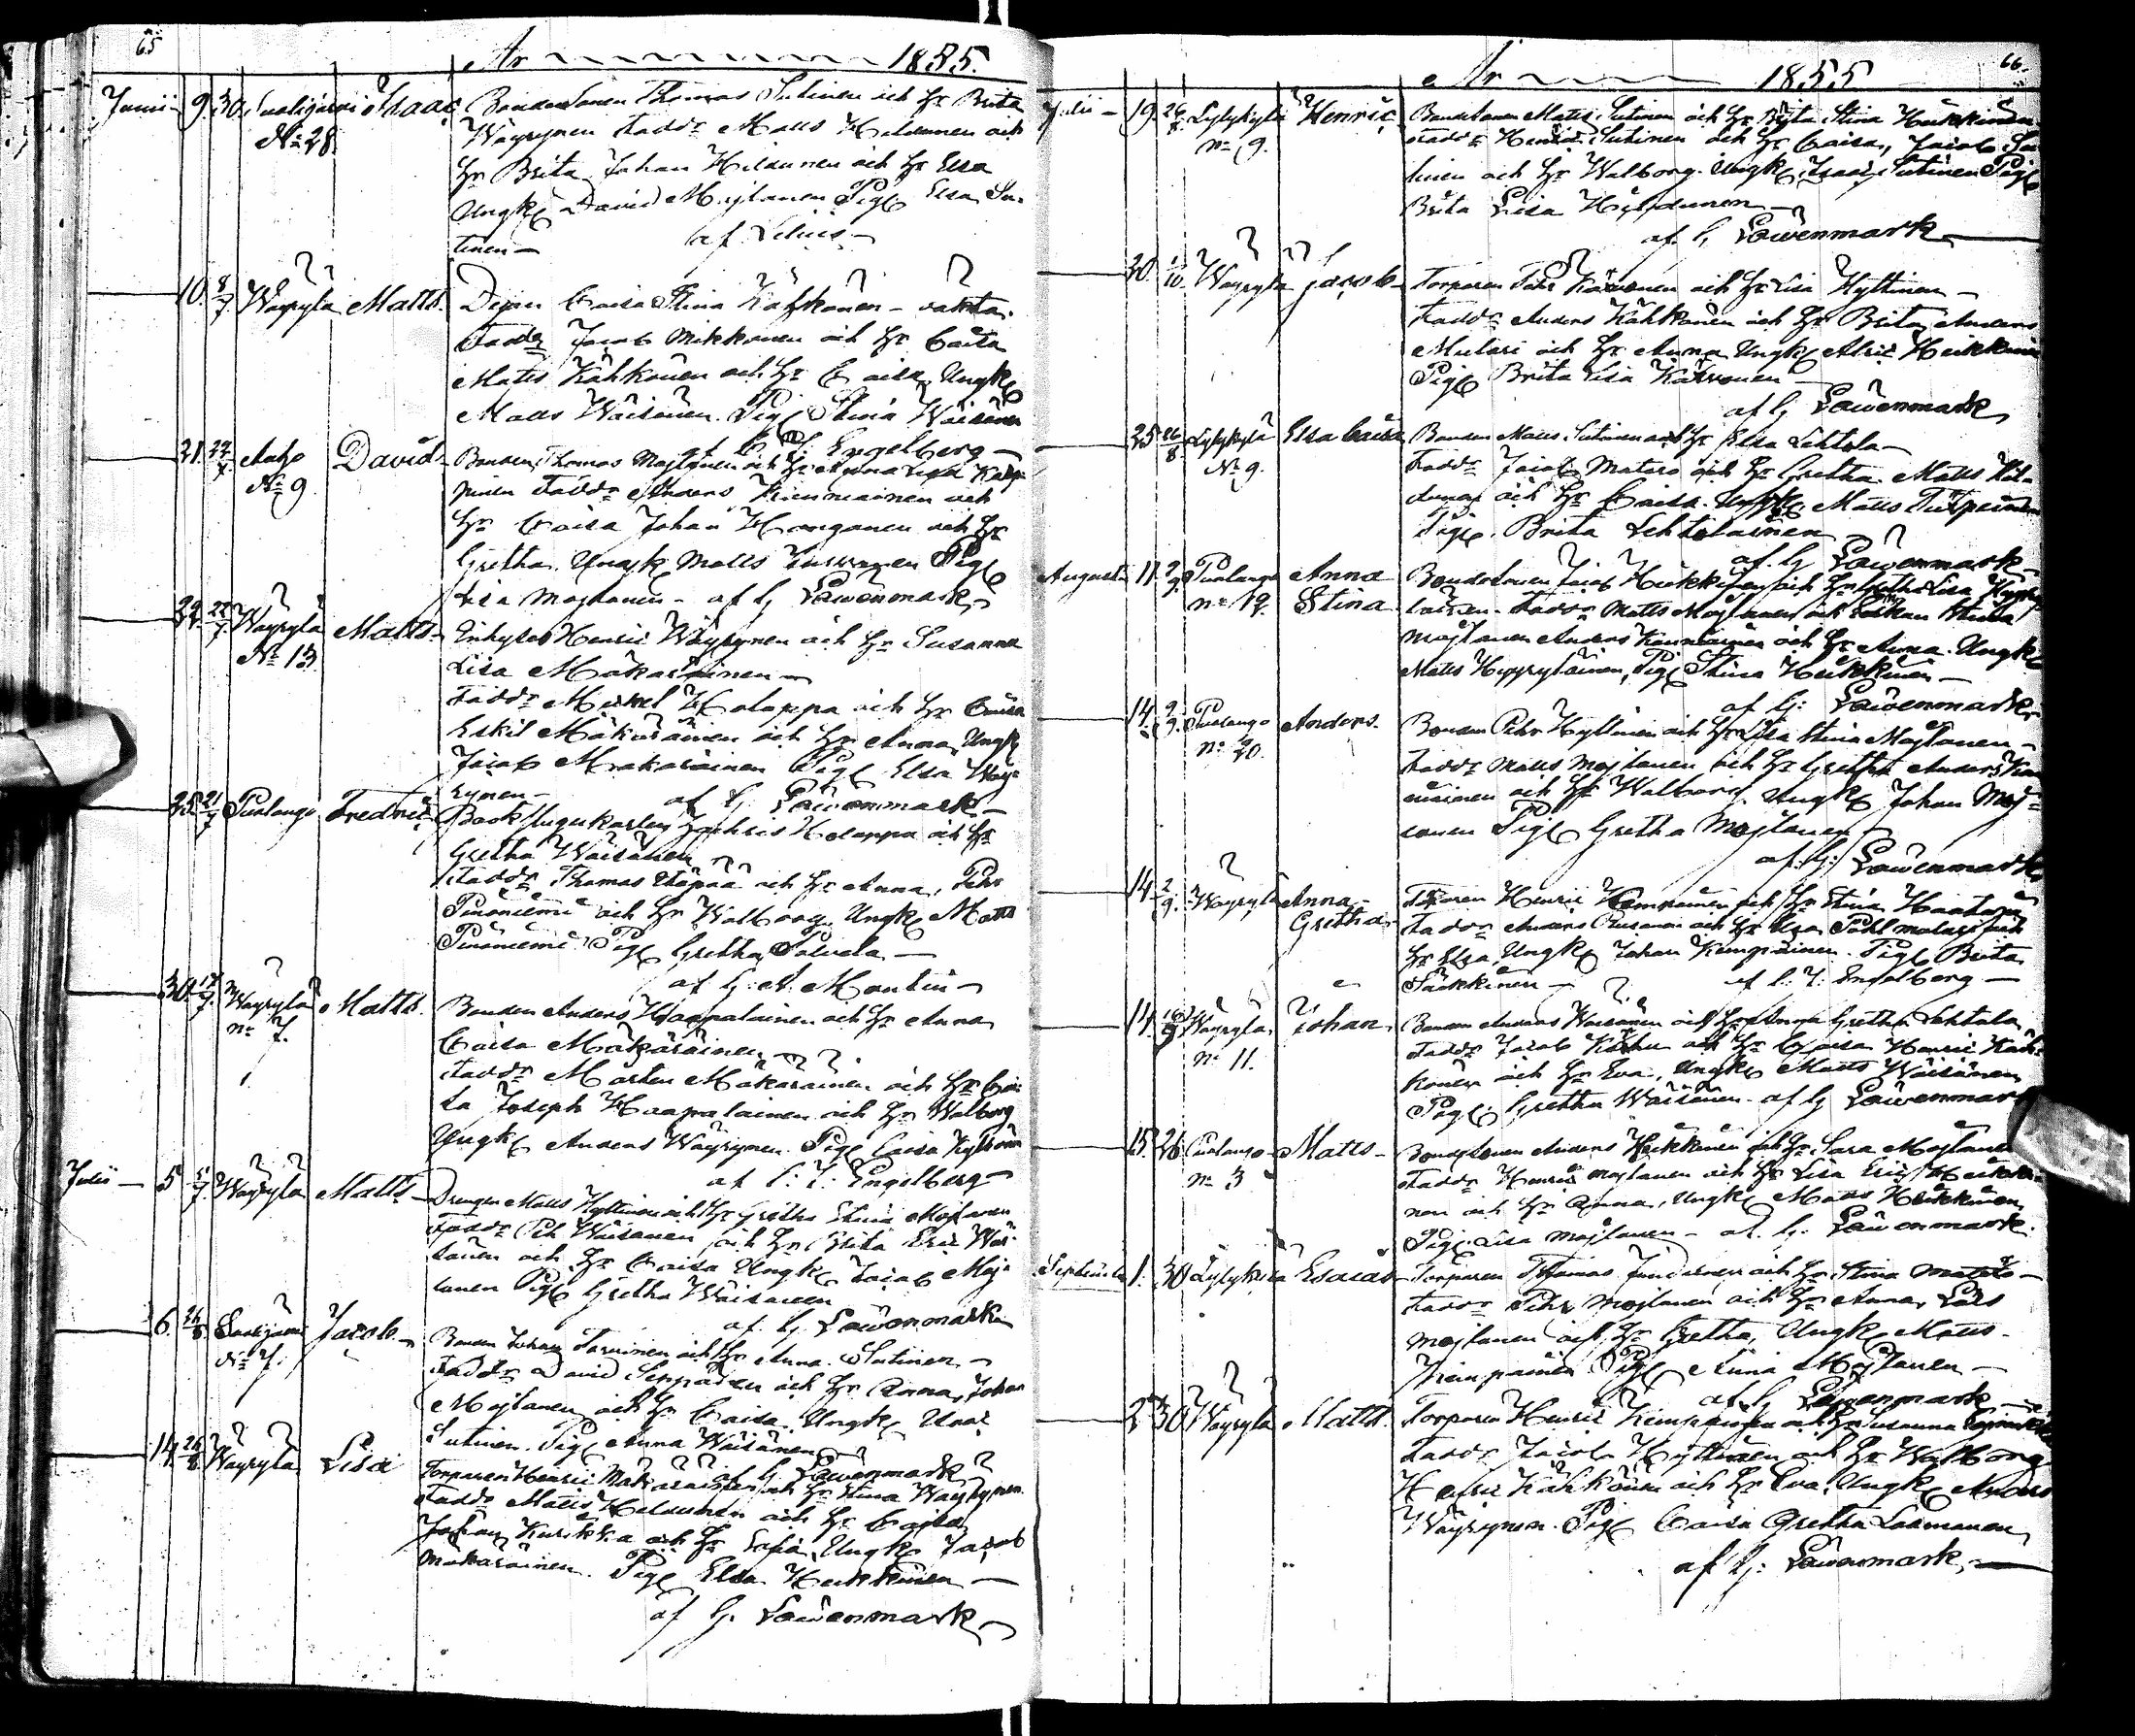 65
År 1855.
Junii 9. 30. Suolijärvi Isaac Bondesonen Thomas Sutinen och Hr Brita
No 28. Wäyrynen Faddr Matts Heldunen och
Hr Brita, Johan Hildunen och Hr Elsa
Ungk David Mojlanen Pig Elsa Su-
tinen — af Lilius —
10. 8/7 Wäyrylä Matts. Pigan Caisa Stina Kähkönen — oäkta.
Faddr Jacob Mikkonen och Hr Caisa
Matts Kähkönen och Hr Caisa, Ungk
Matts Wäisänen. Pig Stina Wäisänen
af C. J. Engelberg —
21. 22/7 Aatjo David Bonden Thomas Mojlanen och Hr Anna Lisa
No 9 Faddr Anders Kinnuinen och
Hr Caisa Johan Hanganen och Hr
Gretha. Ungk Matts Pig
Lisa Mojlanen — af G Lawenmark
22. 22/7 Wäyrylä Matts. Inhyses Henric Wäyrynen och Hr Susanna
No 13. Lisa Mäkäräinen
Faddr Mickel Holappa och Hr Caisa
Eskil Mäkäräinen och Hr Anna, Ungk
Jacob Mäkäräinen Pig Elsa Wäy-
rynen — af G. Lawenmark —
25. 21/7 Puolango Fredric Zachris Holappa och Hr
Gretha Wäisänen
Faddr Thomas och Hr Anna, Pehr
Puoniemi och Hr Walborg. Ungk Matts
Puoniemi Pig Gretha Palvela —
af G. A. Montin —
30. 17/7. Wäyrylä Matts. Bonden Anders Haapalainen och Hr Anna
No 7. Caisa Mäkäräinen
Faddr Mårten Mäkäräinen och Hr Cai-
sa Joseph Haapalainen och Hr Walborg
Ungk Anders Wäyrynen. Pig Caisa
af C. J. Engelberg
Julii — 5 5/7. Wäyrylä Matts — Drengen Matts Hyttinen och Hr Gretha Stina Mojlanen
Faddr Pehr Wäisänen och Hr Brita Eric Wäi-
sänen och Hr Caisa Ungk Jacob Moj-
lanen Pig Gretha Wäisänen
af. G. Lawenmark
6. 26/8. Suolijärvi Jacob. Bonden Johan Tarvinen och Hr Anna Sutinen —
No 7. Faddr David Seppänen och Hr Anna, Johan
Mojlanen och Hr Caisa. Ungk
Sutinen. Pig Anna Wäisänen
af G Lawenmark
14. 26/8. Wäyrylä Lisa Torparen Henric Mäkäräinen och Hr Stina Wäyrynen.
Faddr Matts Heldunen och Hr Caisa
Johan Kurikka och Hr Sofia, Ungk Jacob
Mäkäräinen. Pig Elsa Heikkinen —
af G. Lawenmark
66.
År 1855
Julii — 19. 26/8. Lylykylä Henric Bondesonen Matts Sutinen och Hr Brita Stina Heikkinen
No 9. Faddr Henric Sutinen och Hr Caisa, Jacob Su-
tinen och Hr Walborg. Ungk Isaac Sutinen Pig
Brita Lisa Hyldunen —
af. G Lawenmark
20. 1/10. Wäyrylä Jacob Torparen Pehr Karvonen och Hr Lisa Hyttinen —
Faddr Anders Kähkönen och Hr Brita, Anders
Mulari och Hr Anna Ungk Alric Heikkinen
Pig Brita Lisa Karvonen —
af G Lawenmark
25 26/8 Lylykylä Elsa Caisa Bonden Matts Sutinen och Hr Elsa Lehtola —
No 9. Faddr Jacob Matero och Hr Gretha Matts Hil-
dunen och Hr Caisa. Ungk. Matts
Pig. Brita Lehtolainen
af. G Lawenmark —
Augusti 11. 2/9. Puolango Anna Bondesonen Jacob Heikkinen och Hr Gretha Lisa Hyyry-
No 19. Stina läinen. Faddr Matts Mojlanen och Enkan Stina
Mojlanen Anders Kinnuinen och Hr Anna. Ungk
Matts Hyyryläinen, Pig Stina Heikkinen —
af G: Lawenmark
14. 2/9. Puolango Anders. Bonden Pehr Hyttinen och Hr Lisa Stina Mojlanen —
No 20. Faddr Matts Mojlanen och Hr Gretha Anders Kin-
nuinen och Hr Walborg. Ungk Johan Moj-
lanen Pig Gretha Mojlanen —
af. G: Lawenmark
14. 2/9. Wäyrylä Anna Torparen Henric Kemppainen och Hr Stina Haataja
Gretha Faddr Anders och Hr Elsa Påhl Mulari och
Hr Elsa, Ungk Johan Kemppainen. Pig Brita
Säkkinen — af C: J: Engelberg —
14. 16/9 Wäyrylä Johan. Bonden Anders Wäisänen och Hr Anna Gretha Lehtola
No 11. Faddr Jacob Karhu och Hr Caisa Henric Käh-
könen och Hr Eva, Ungk Matts Wäisänen
Pig. Gretha Wäisänen. af G Lawenmark
15. 26 Puolango Matts — Bondesonen Anders Heikkinen och Hr Sara Mojlanen
No 3 Faddr Henric Mojlanen och Hr Lisa Eric Heikki-
nen och Hr Anna, Ungk Matts Heikkinen
Pig Lisa Mojlanen — af. G: Lawenmark.
September 1. 30 Lylykylä Esaias — Torparen Thomas och Hr Stina Matero —
Faddr Pehr Mojlanen och Hr Anna, Lars
Mojlanen och Hr Gretha, Ungk Matts
Kemppainen Pig Anna Mojlanen —
af G Lawenmark
2 30 Wäyrylä Matts. Torparen Henric Kemppainen och Hr Susanna
Faddr Jacob Hyttinen och Hr Walborg
Henric Kähkönen och Hr Eva, Ungk Anders
Wäyrynen. Pig Caisa Gretha Laamanen
af G: Lawenmark